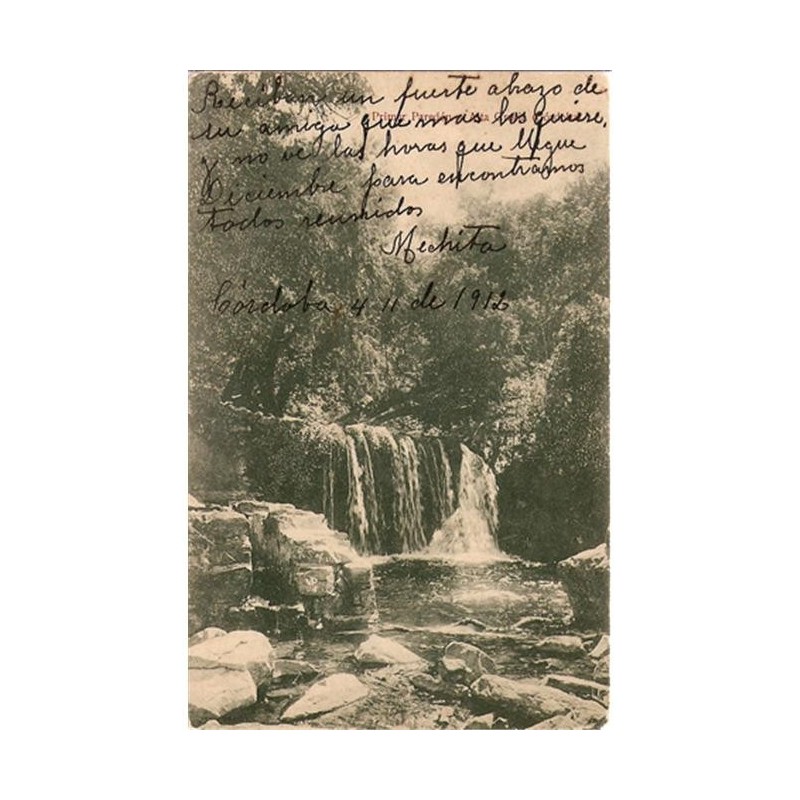 Reciban un fuerte abrazo de
su amiga que mas los quiere,
y no ve las horas que llegue
Diciembre para encontrarnos
todos reunidos
Mechita
Córdoba, 4 11 de 1912
Primer Paredón